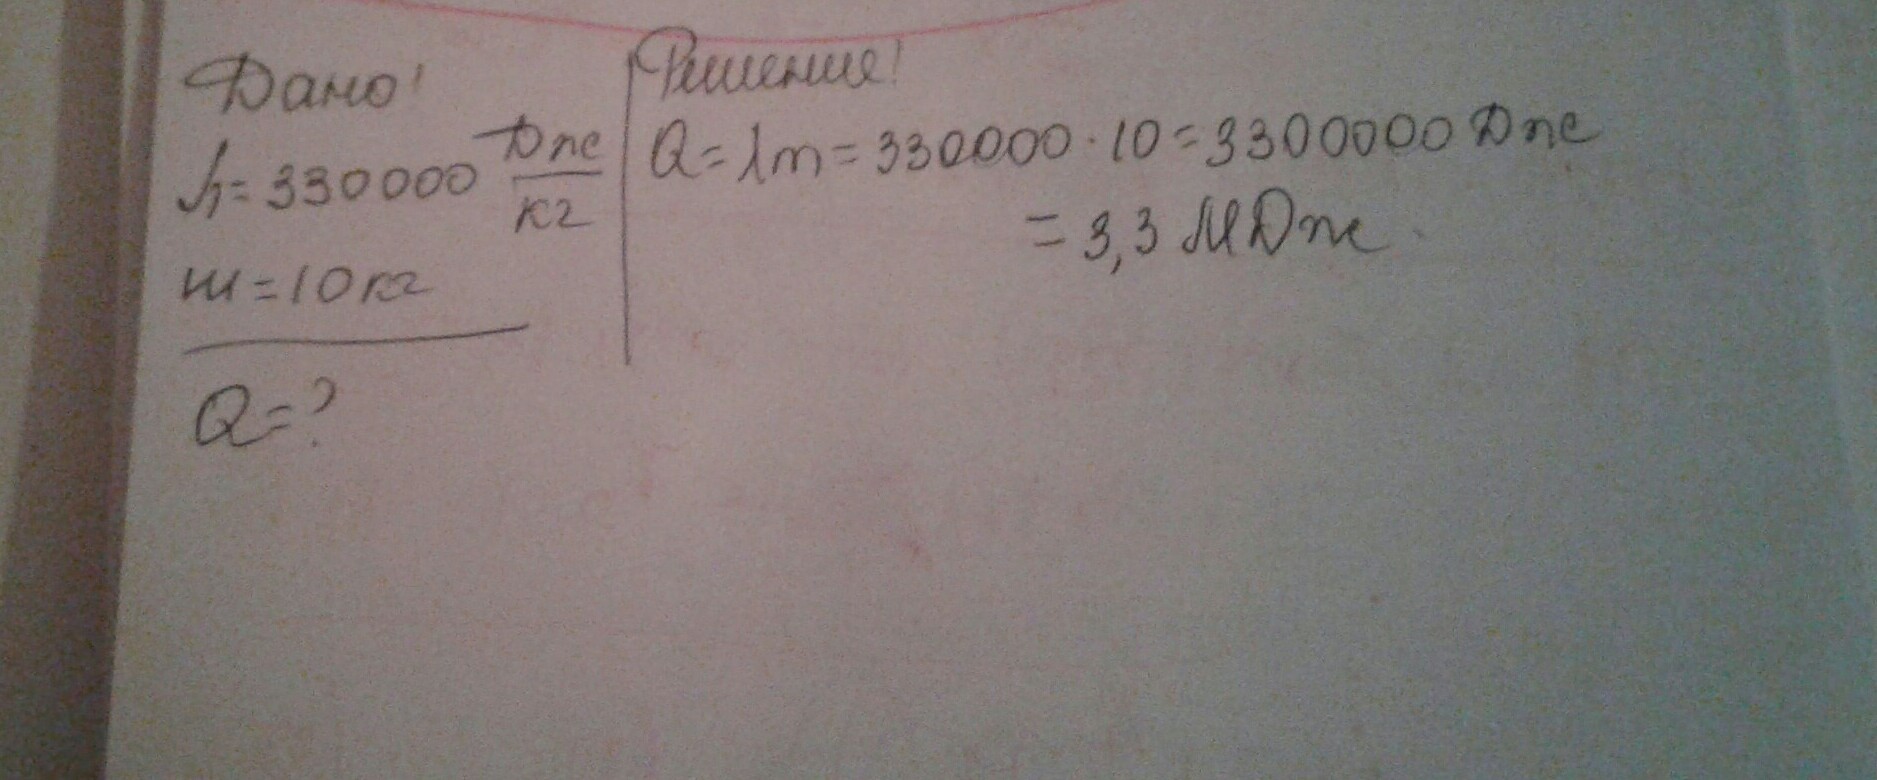 Дано:
λ=330000 Дж/кг
m=10кг
Q=?
Решение:
Q=λm=330000·10=3300000 Дж
=3,3 МДж.